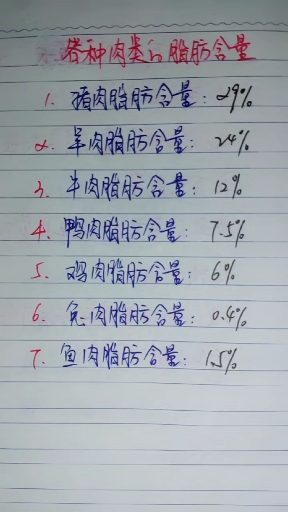 各种肉类的脂肪含量
1. 猪肉脂肪含量：29%
2. 羊肉脂肪含量：24%
3. 牛肉脂肪含量：12%
4. 鸭肉脂肪含量：7.5%
5. 鸡肉脂肪含量：6%
6. 兔肉脂肪含量：0.4%
7. 鱼肉脂肪含量：1.5%